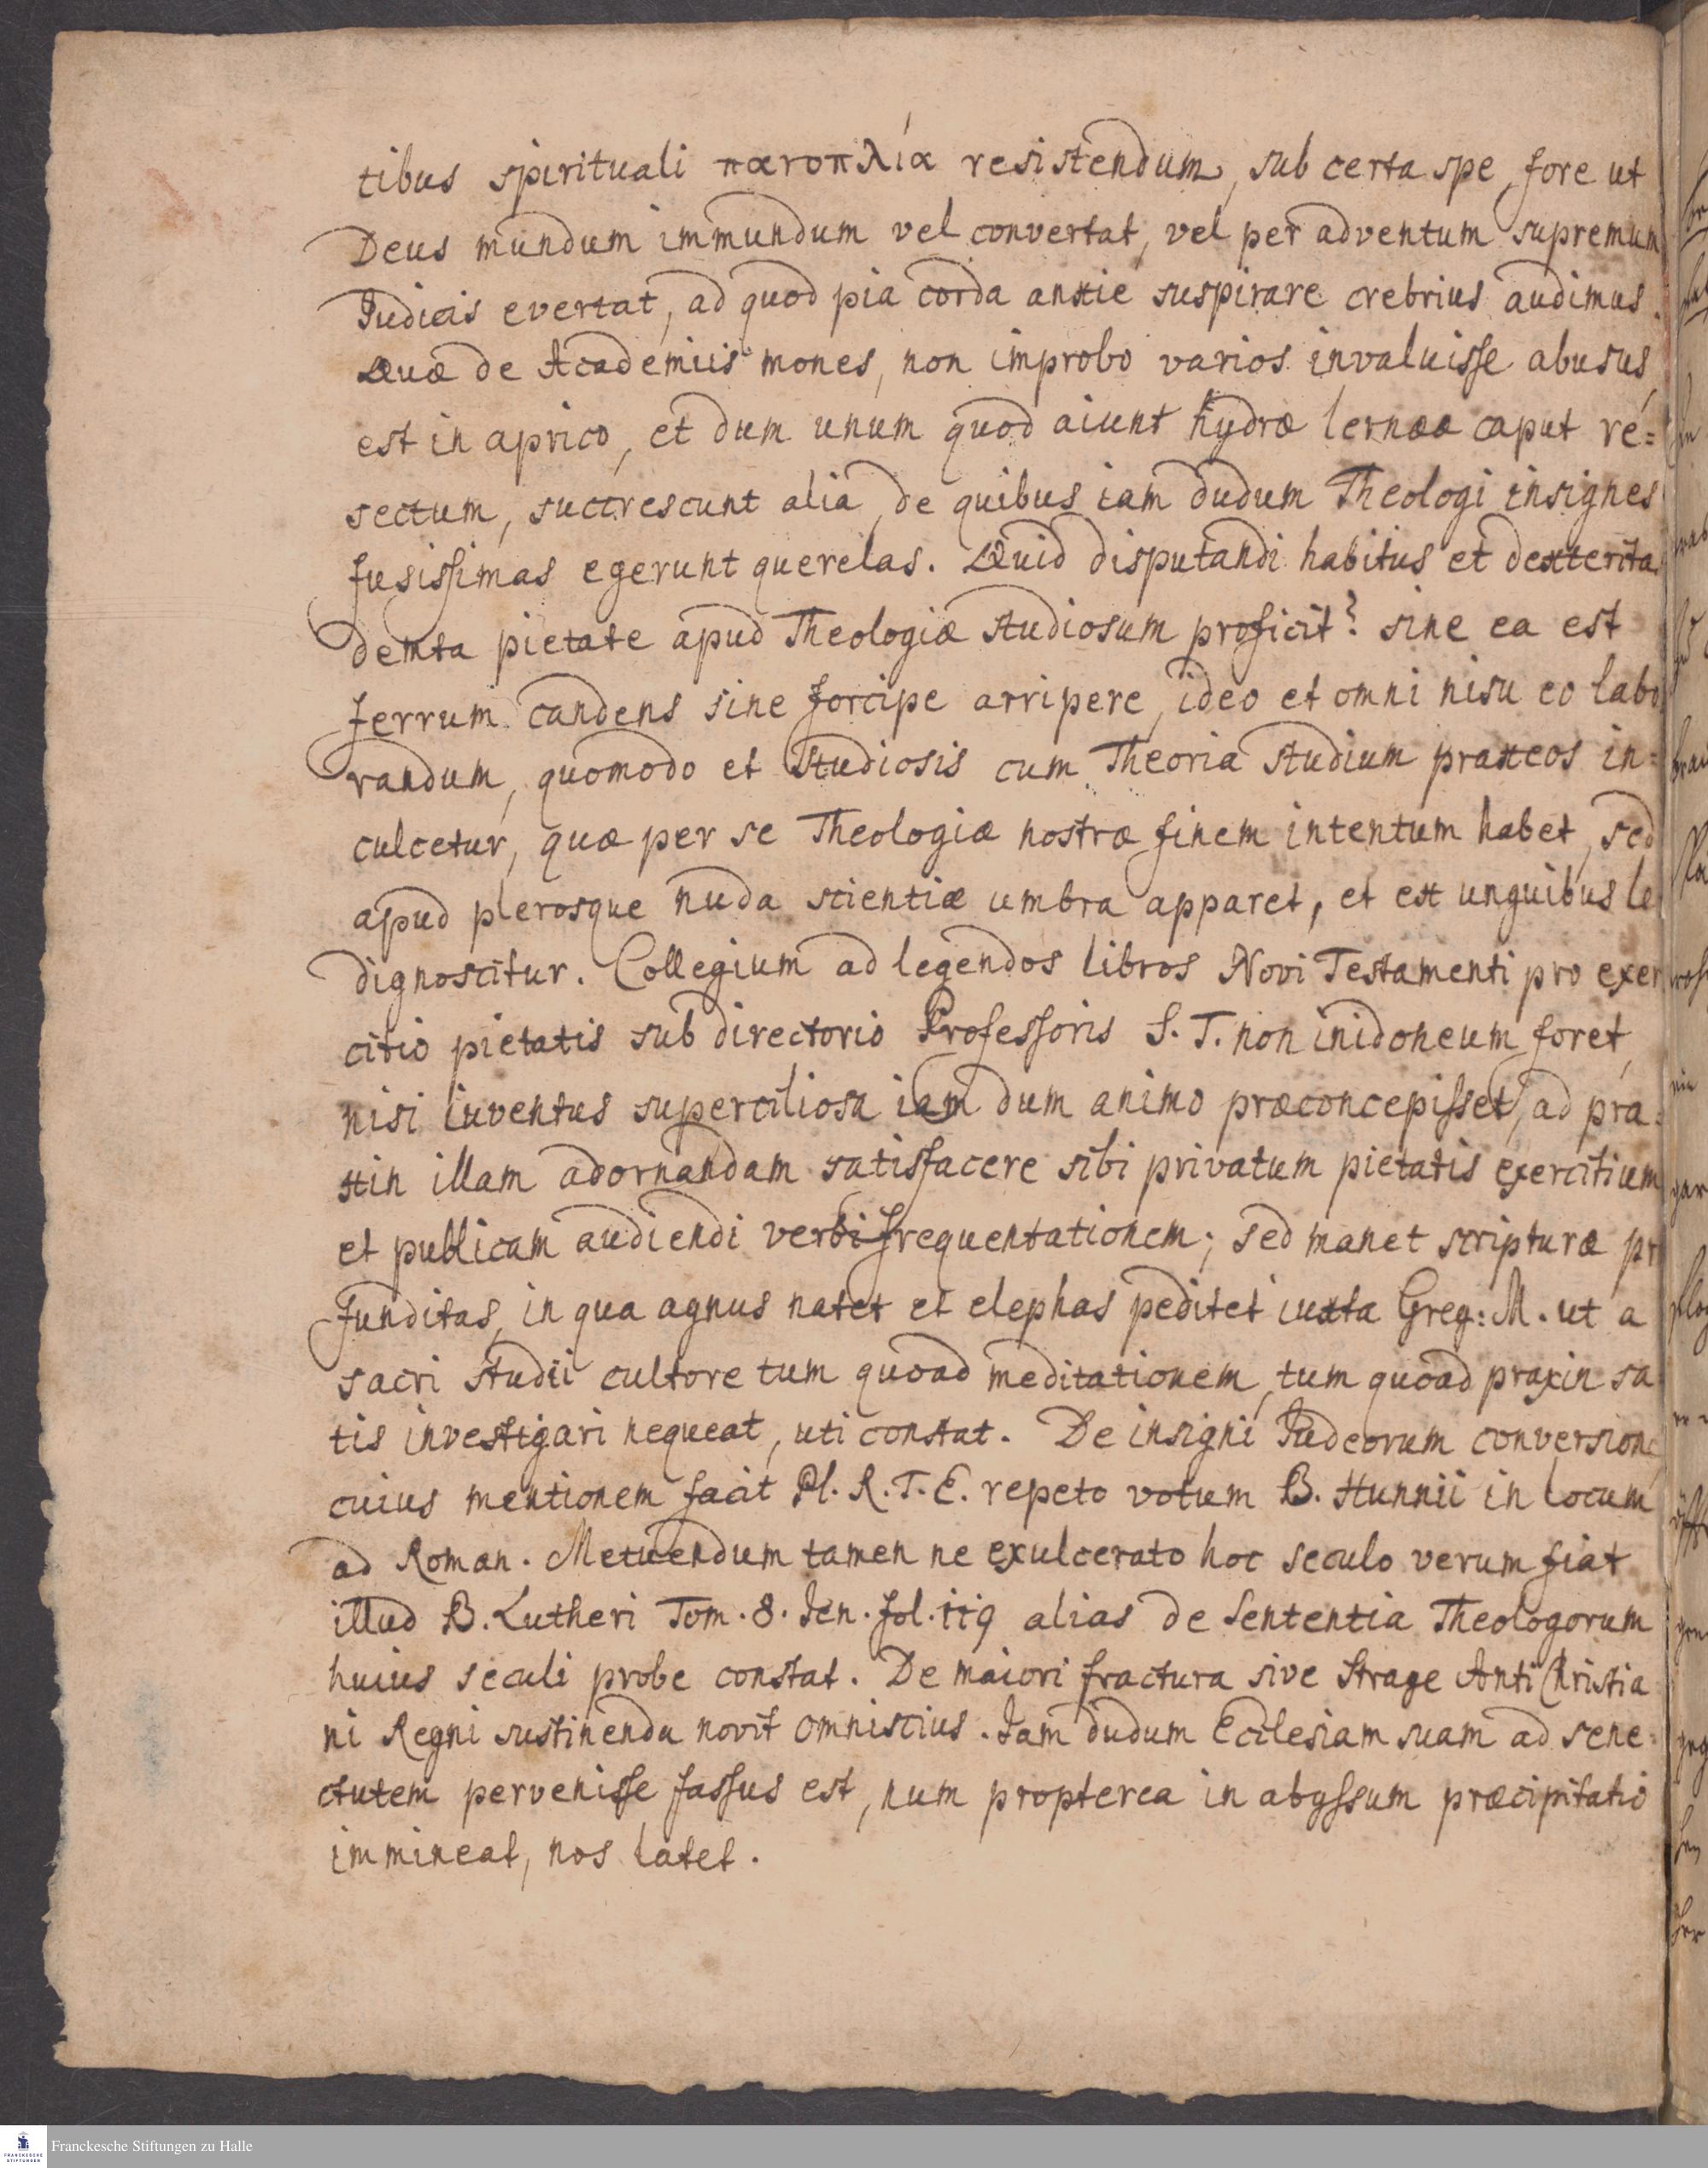 tibus spirituali πανοπλία resistendum, sub certa spe, fore ut
Deus mundum immundum vel convertat, vel per adventum supremum
Judicis evertat, ad quod pia corda anxie suspirare crebrius audimus.
Quæ de Academiis mones, non improbo varios invaluisse abusus,
est in aprico, et dum unum quod aiunt hydræ lernææ caput re=
sectum, succrescunt alia, de quibus iam dudum Theologi insignes
fusissimas egerunt querelas. Quid disputandi habitus et dexterita
demta pietate apud Theologiæ studiosum proficit? sine ea est
ferrum candens sine forcipe arripere, ideo et omni nisu eo labo
randum, quomodo et studiosis cum Theoria studium praxeos in=
culcetur, quæ per se Theologiæ nostræ finem intentum habet, sed
apud plerosque nuda scientiæ umbra apparet, et ex unguibus le
dignoscitur. Collegium ad legendos libros Novi Testamenti pro exer
citio pietatis sub directorio Professoris S. T. non inidoneum foret,
nisi iuventus superciliosa iam dum animo præconcepisset, ad pra=
xin illam adornandam satisfacere sibi privatum pietatis exercitium
et publicam audiendi verbi frequentationem; sed manet scripturæ pr
funditas, in qua agnus natet et elephas peditet iuxta Greg: M. ut a
sacri studii cultore tum quoad meditationem, tum quoad praxin sa
tis investigari nequeat, uti constat. De insigni Judeorum conversione
cuius mentionem facit Pl. R. T. E. repeto votum B. Hunnii in locum
ad Roman. Metuendum tamen ne exulcerato hoc seculo verum fiat
illud B. Lutheri Tom. 8. Jen. fol. 119 alias de Sententia Theologorum
huius seculi probe constat. De maiori fractura sive Strage AntiChristia
ni Regni sustinenda novit omniscius. Jam dudum Ecclesiam suam ad sene=
ctutem pervenisse fassus est, num propterea in abyssum præcipitatio
immineat, nos latet.
Franckesche Stiftungen zu Halle